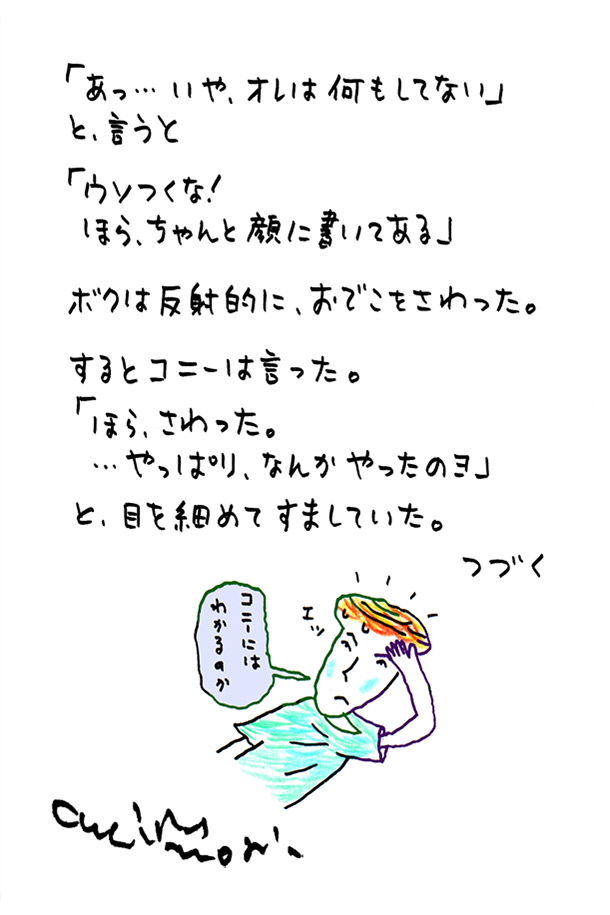 「あっ… いや、オレは 何もしてない」
と、言うと
「ウソつくな!
ほら、ちゃんと 顔に 書いてある」
ボクは 反射的に、おでこをさわった。
すると コニーは 言った。
「ほら、さわった。
…やっぱり、なんか やったのヨ」
と、目を 細めて すましていた。
つづく
エッ
コニーには
わかるのか